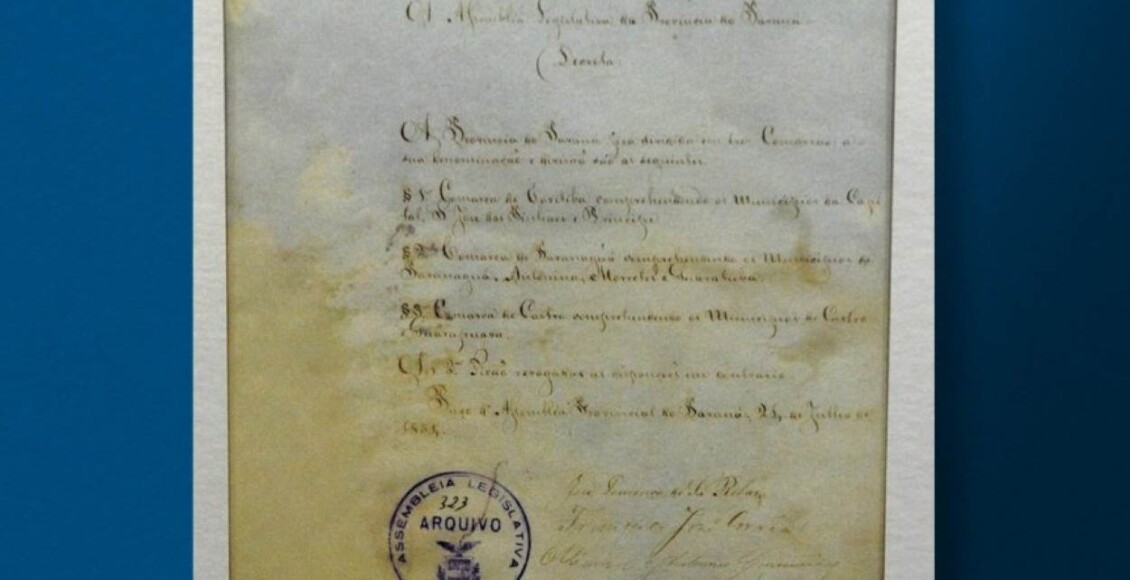 A Assemblea Legislativa da Provincia do Paraná
Decreta
A Provincia do Paraná fica dividida em tres Comarcas, a
sua denominação e divisão são as seguintes
§ 1º Comarca de Coritiba comprehendendo os Municipios da Capi
tal, S José dos Pinhaes e Principe
§ 2º Comarca de Paranaguá comprehendendo os Municipios de
Paranaguá, Antonina, Morretes e Guaratuba.
§ 3º Comarca de Castro comprehendendo os Municipios de Castro
e Guarapuava.
2º Ficão revogadas as disposições em contrario
Paço da Assemblea Provincial do Paraná, de Julho de
1854.
José Lourenço de Sá Ribas
Francisco José Correia
ASSEMBLEIA LEGISLATIVA
323
ARQUIVO